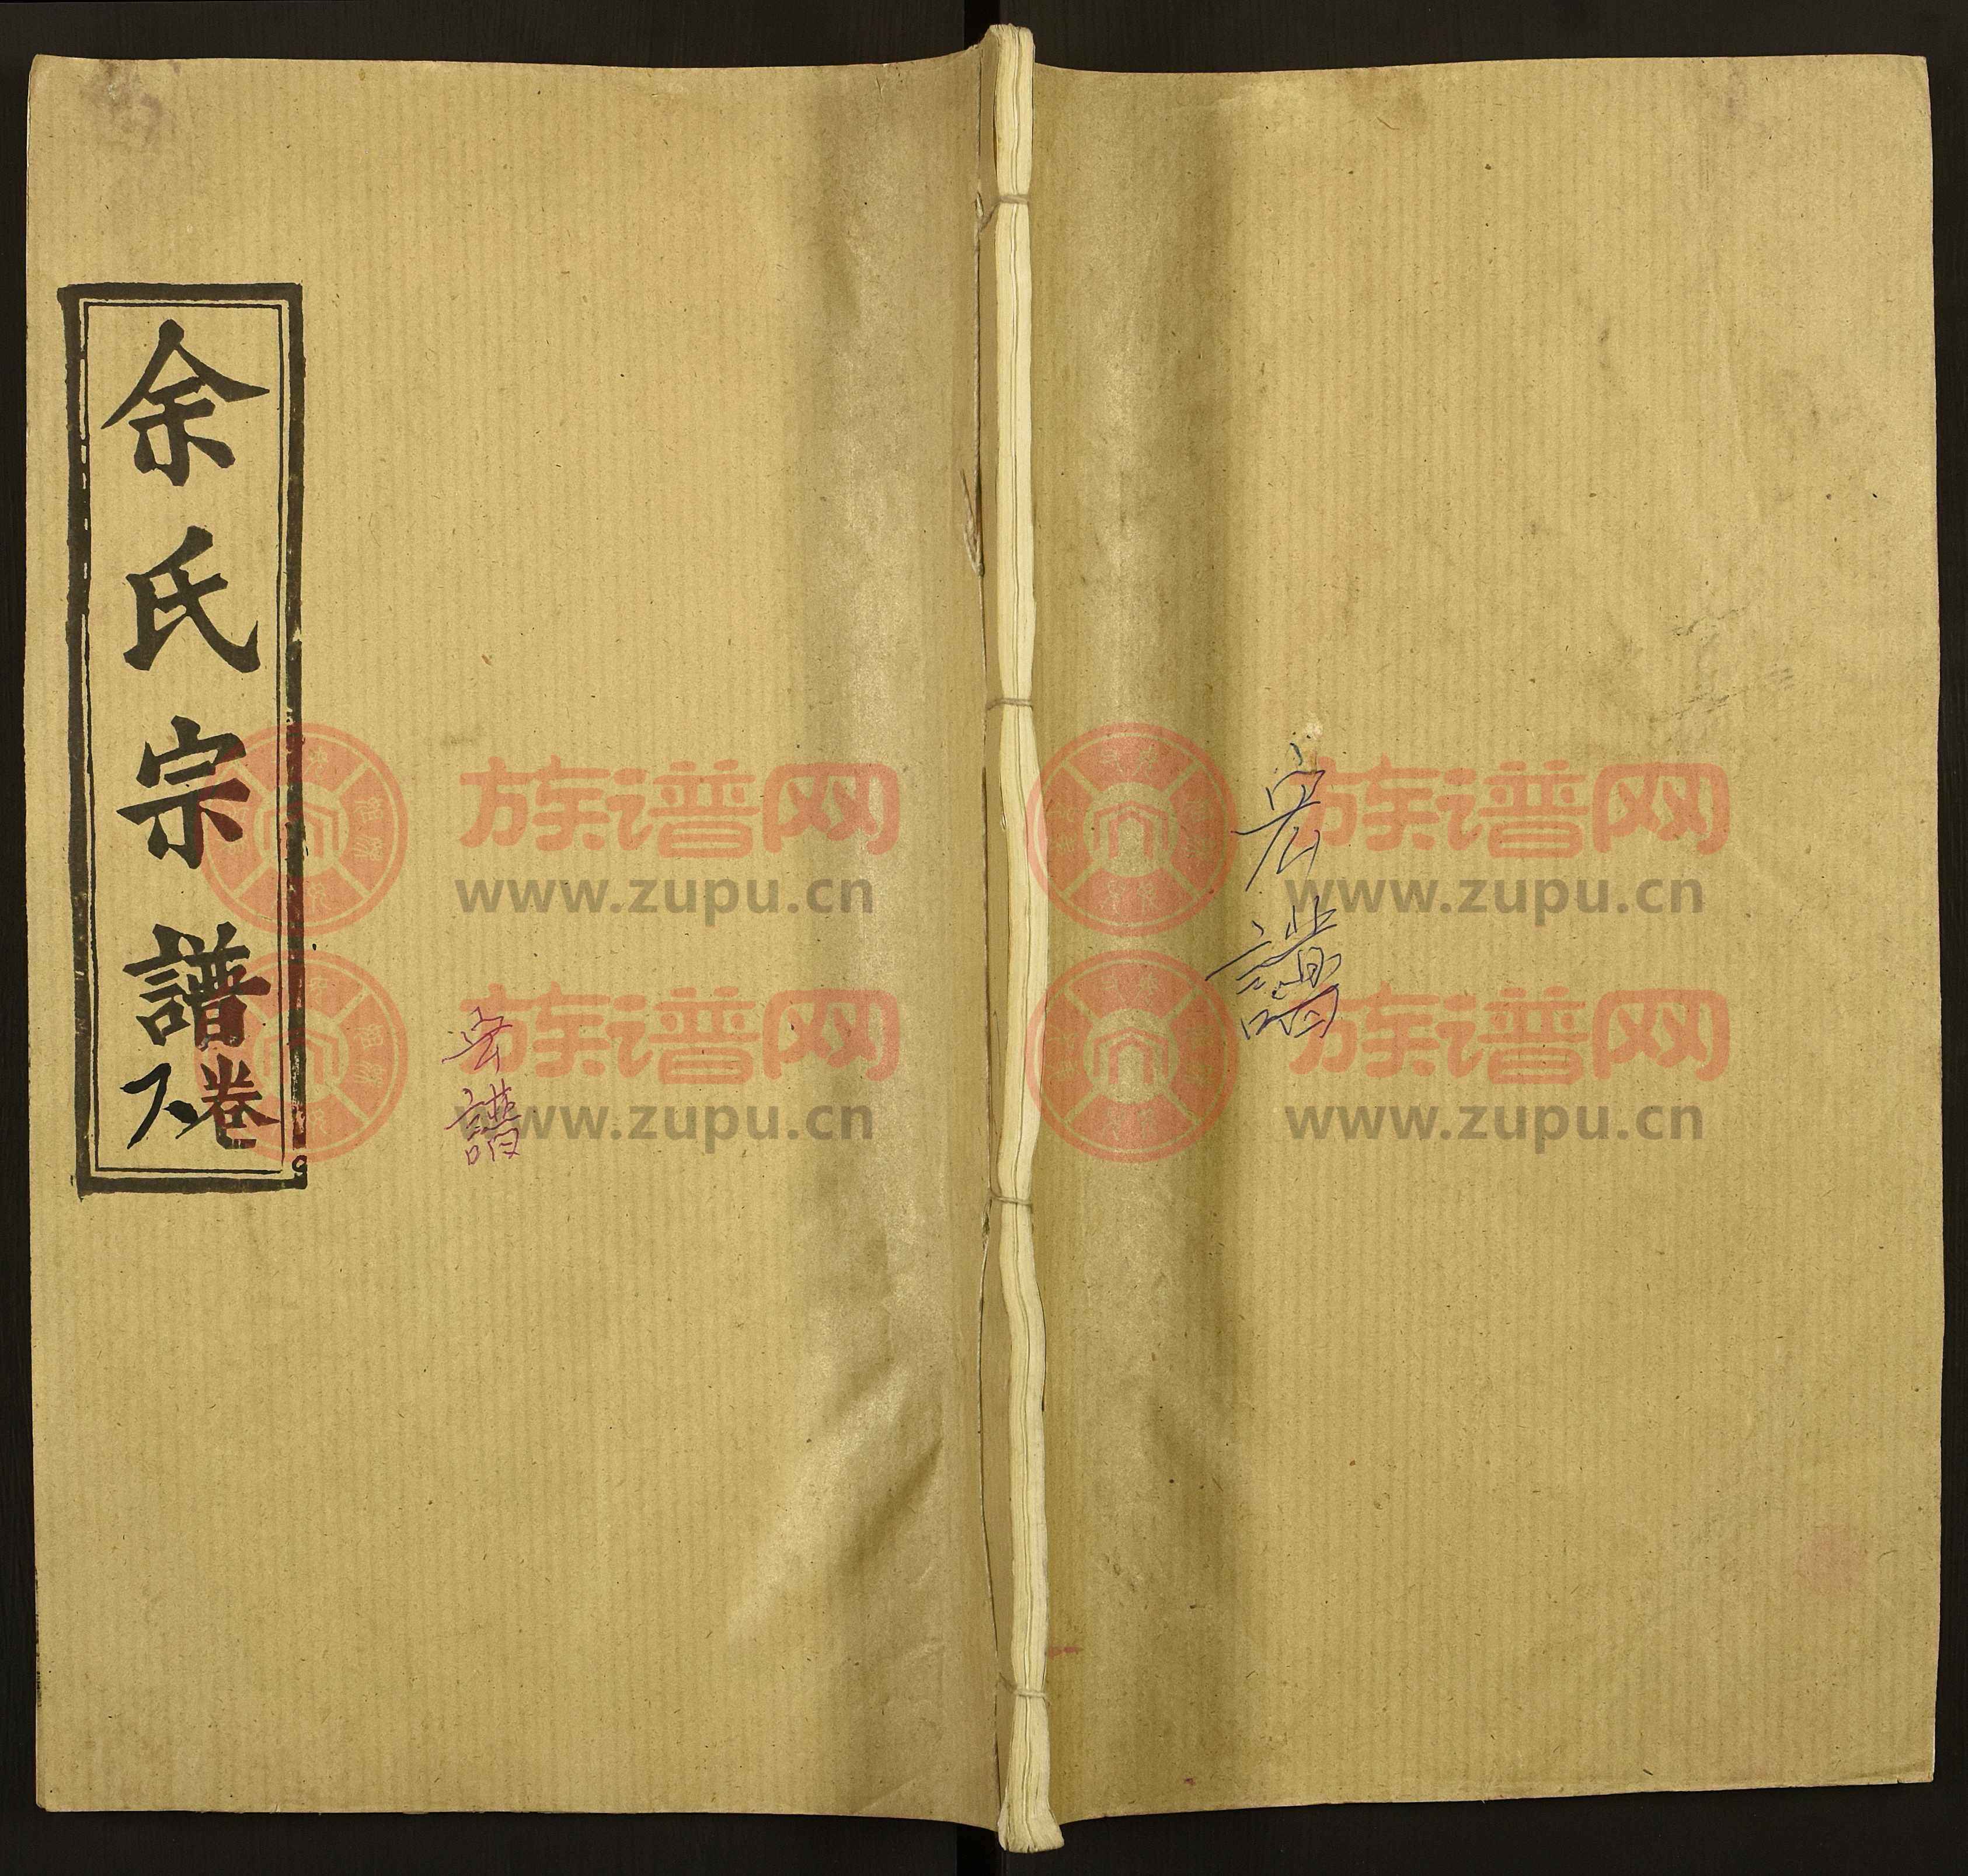 余氏宗譜
卷
宏譜
宏譜
族谱网
www.zupu.cn
族谱网
www.zupu.cn
族谱网
www.zupu.cn
族谱网
www.zupu.cn